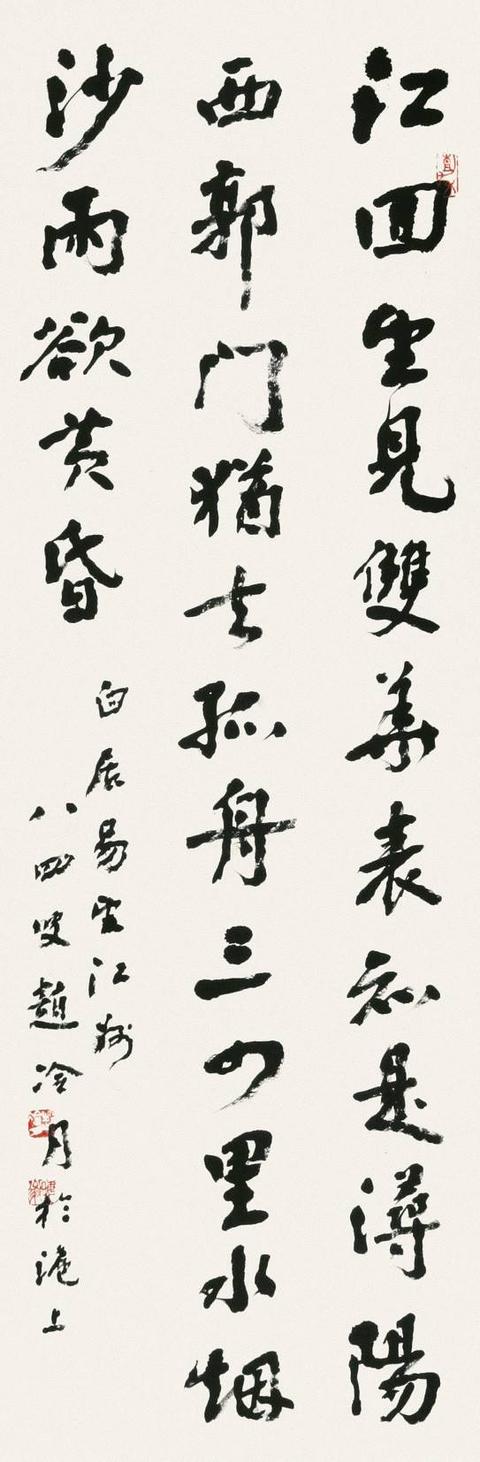 江回望見雙華表知是潯陽
西郭门猶去孤舟三四里水烟
沙雨欲黄昏
白居易望江州
八四叟趙冷月於滬上